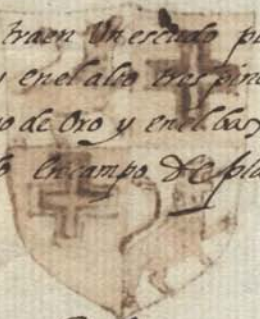 traen Un escudo p
y en el alto tres pin
o de Oro y en el bax
en campo de pla